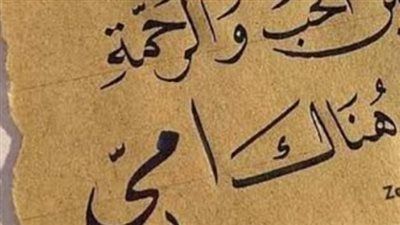 الحب وَالرَّحمَةِ
هُنَاك امّي